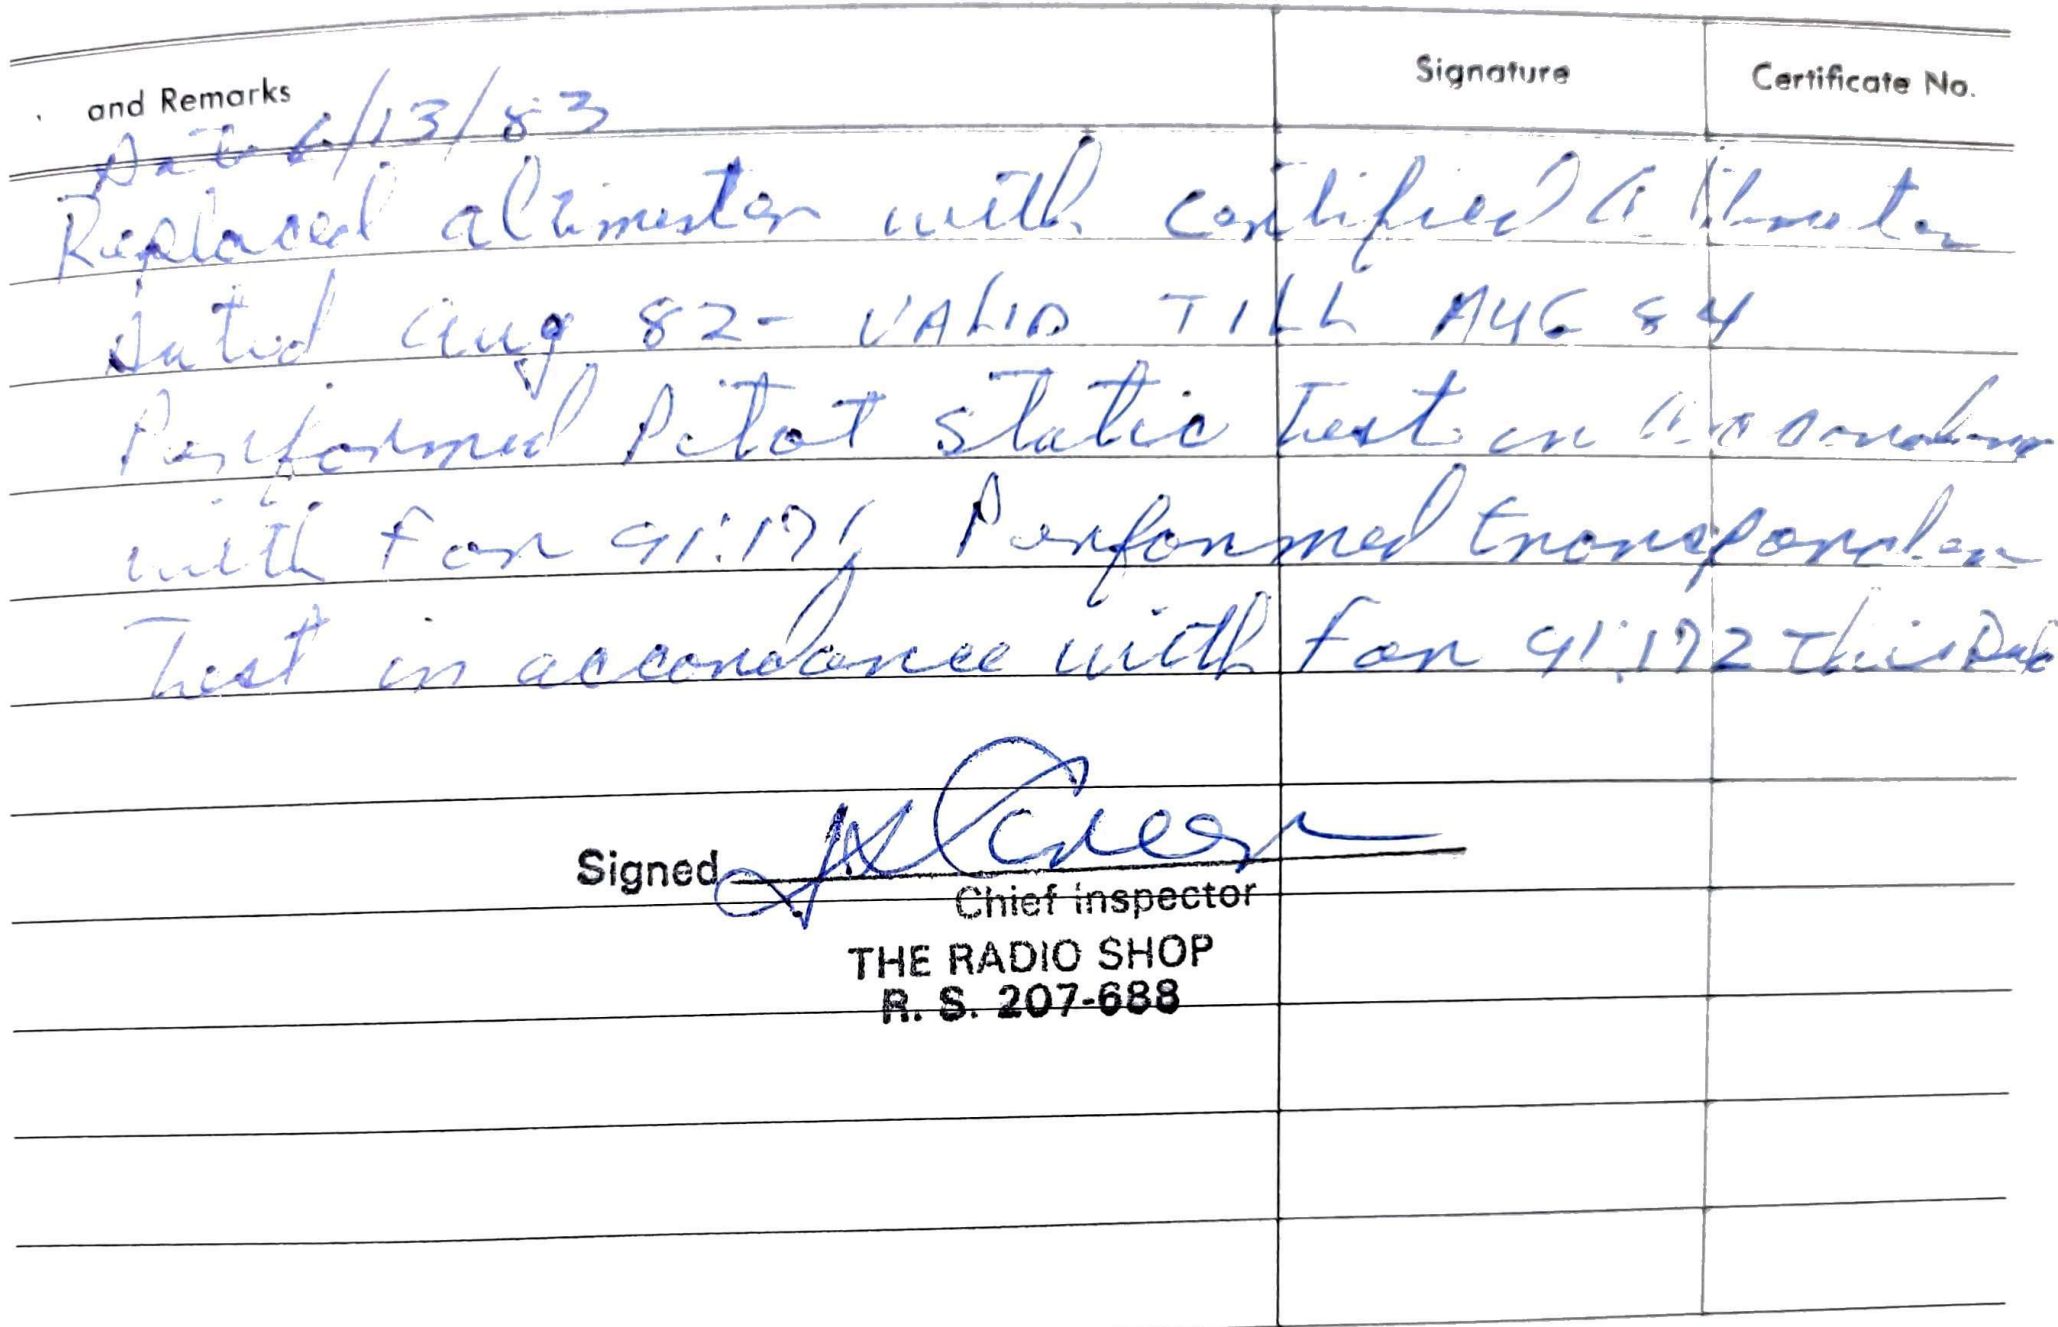 and Remarks
Signature
Certificate No.
Date 6/13/83
Replaced altimeter with certified altimeter
Dated Aug 82- VALID TILL AUG 84
Performed Pitot static Test in accordance
with Far 91.171 Performed transponder
Test in accordance with Far 91.172 This Date
Signed
Chief Inspector
THE RADIO SHOP
R. S. 207-688